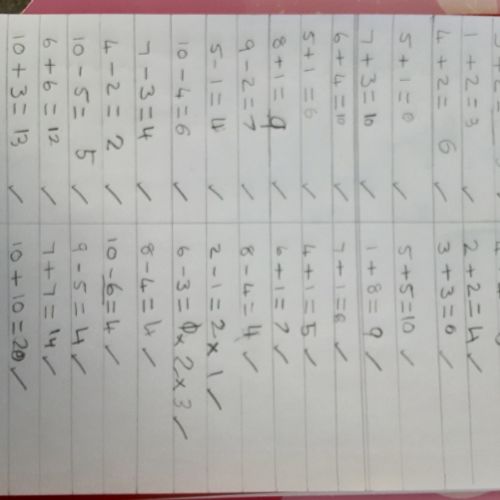 1 + 2 = 3 ✓ 2 + 2 = 4 ✓
4 + 2 = 6 ✓ 3 + 3 = 6 ✓
5 + 1 = 6 ✓ 5 + 5 = 10 ✓
7 + 3 = 10 ✓ 1 + 8 = 9 ✓
6 + 4 = 10 ✓ 7 + 1 = 8 ✓
5 + 1 = 6 ✓ 4 + 1 = 5 ✓
8 + 1 = 9 ✓ 6 + 1 = 7 ✓
9 - 2 = 7 ✓ 8 - 4 = 4 ✓
5 - 1 = 4 ✓ 2 - 1 = 2 x 1 ✓
10 - 4 = 6 ✓ 6 - 3 = x 2 x 3 ✓
7 - 3 = 4 ✓ 8 - 4 = 4 ✓
4 - 2 = 2 ✓ 10 - 6 = 4 ✓
10 - 5 = 5 ✓ 9 - 5 = 4 ✓
6 + 6 = 12 ✓ 7 + 7 = 14 ✓
10 + 3 = 13 ✓ 10 + 10 = 20 ✓